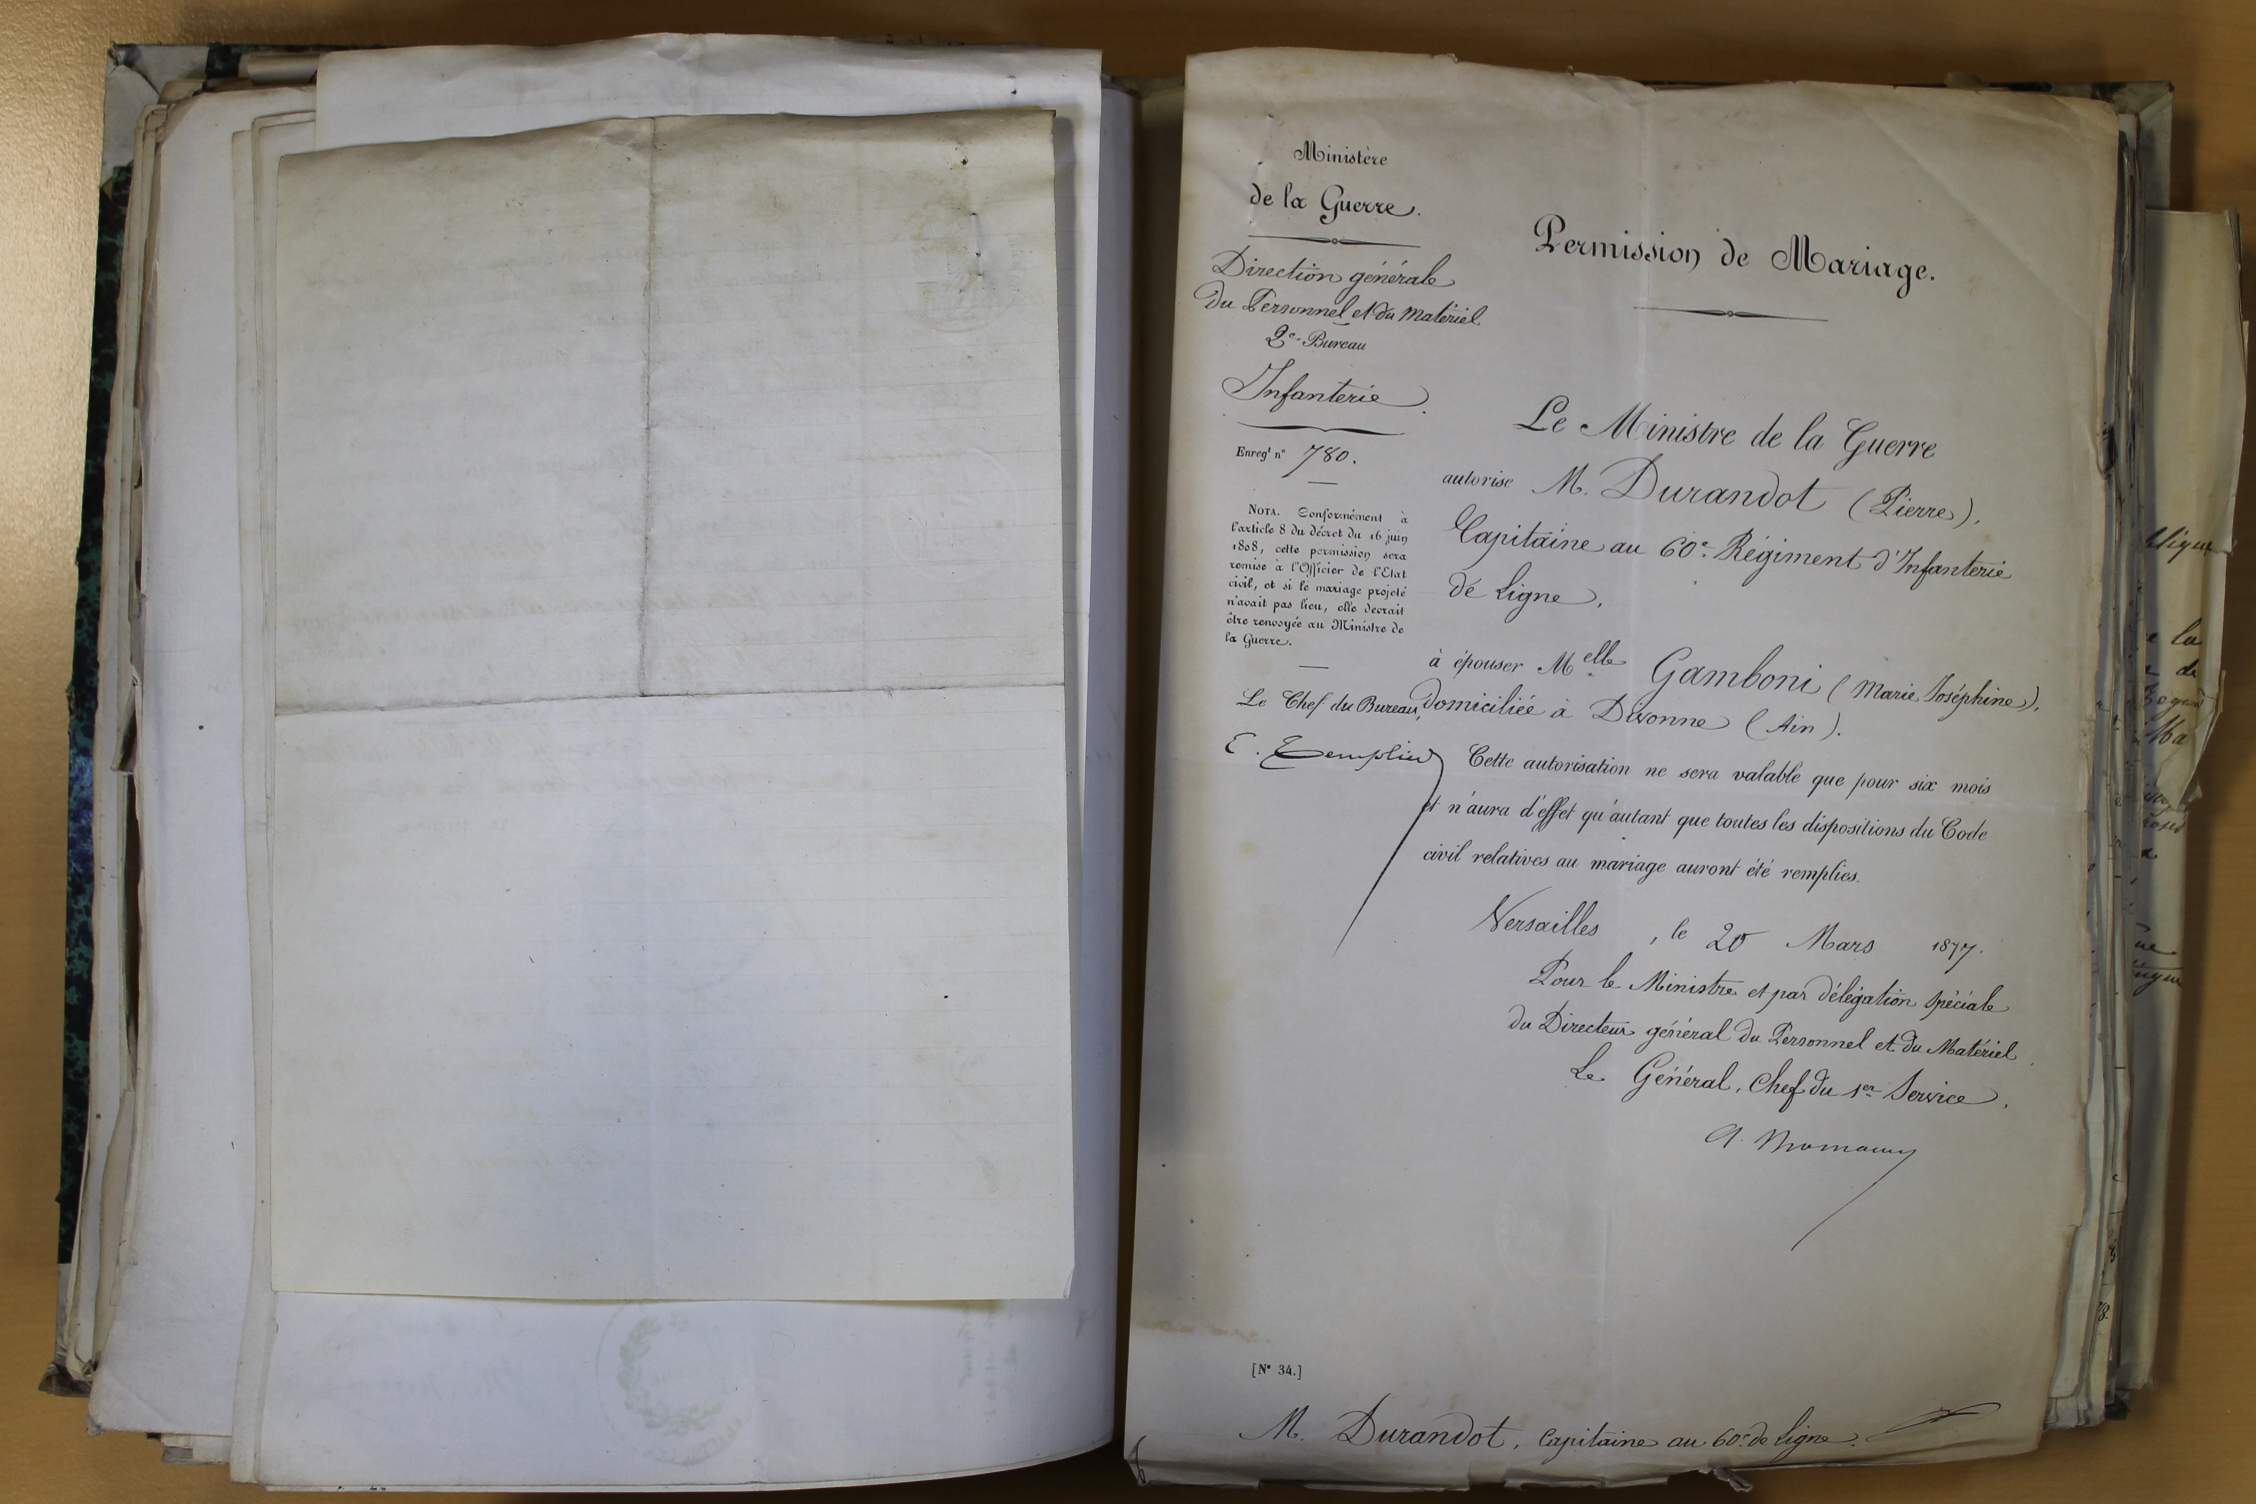 Ministère
de la Guerre.
Direction générale
du Personnel et du Matériel
2e Bureau
Infanterie
Enregt n° 780.
NOTA. Conformément à
l'article 8 du décret du 16 juin
1808, cette permission sera
remise à l'Officier de l'État
civil, et si le mariage projeté
n'avait pas lieu, elle devrait
être renvoyée au Ministre de
la Guerre.
Le Chef du Bureau,
Permission de Mariage.
Le Ministre de la Guerre
autorise M. Durandot (Pierre),
Capitaine au 60e Régiment d'Infanterie
de Ligne,
à épouser Melle Gamboni (Marie Joséphine),
domiciliée à Divonne (Ain).
Cette autorisation ne sera valable que pour six mois
et n'aura d'effet qu'autant que toutes les dispositions du Code
civil relatives au mariage auront été remplies.
Versailles, le 20 Mars 1877.
Pour le Ministre et par délégation spéciale
du Directeur général du Personnel et du Matériel
Le Général, Chef du 1er Service,
[N° 34.]
M. Durandot, Capitaine au 60e de Ligne.
la
de